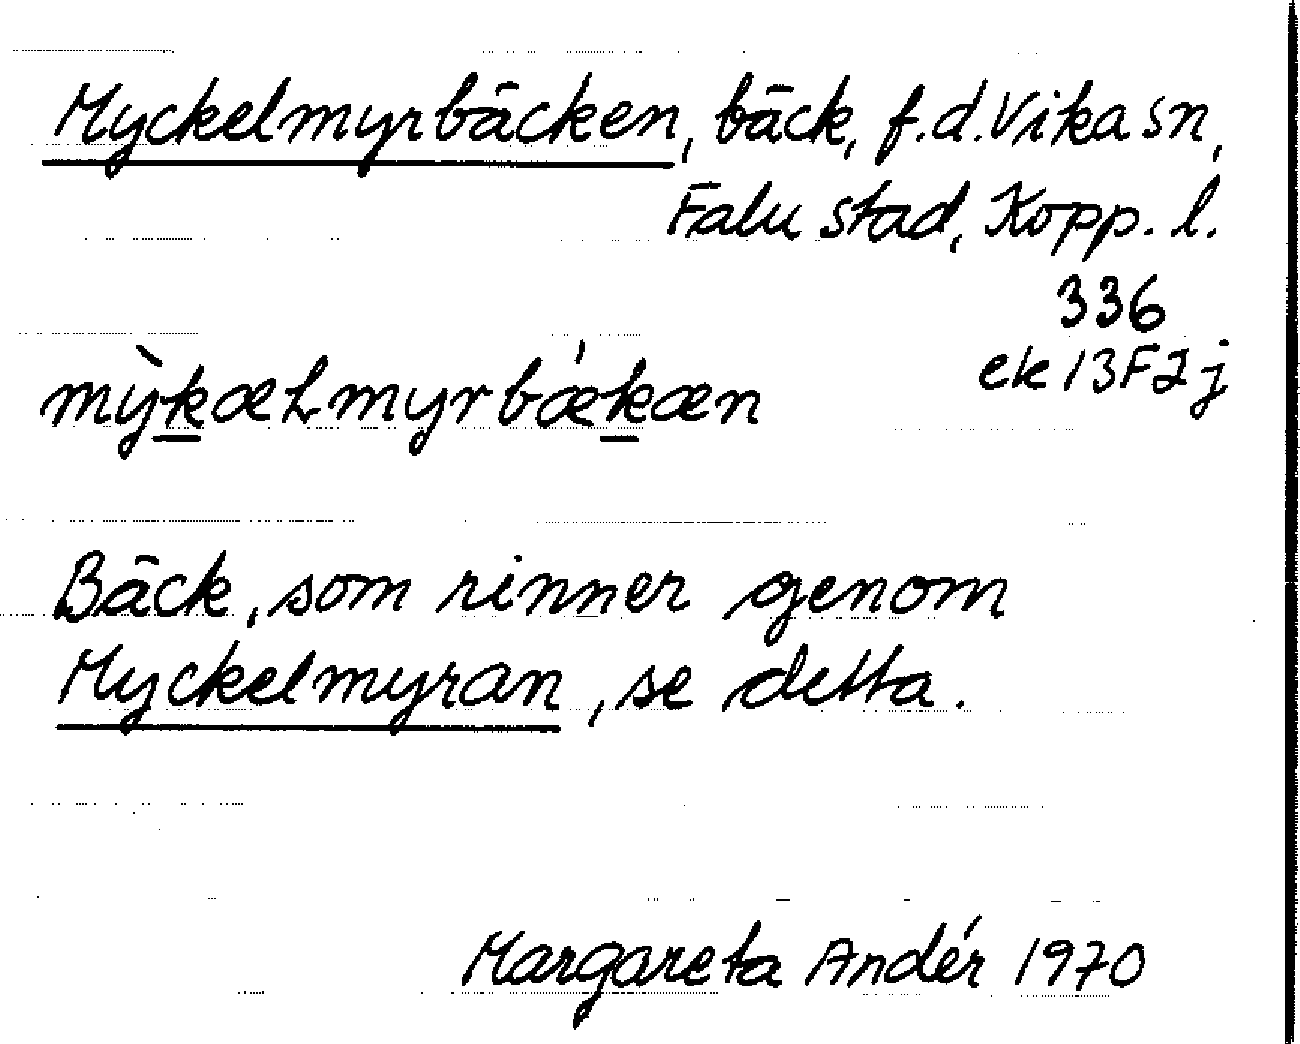 Myckelmyrbäcken, bäck, f.d. Vika sn,
Falu stad, Kopp. l.
336
ek 13F2j
mỳk̲æƚmyrbǽk̲æn
Bäck, som rinner genom
Myckelmyran, se detta.
Margareta Andér 1970